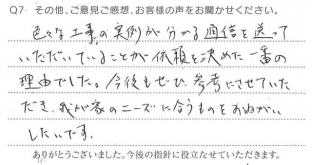 Q7. その他、ご意見ご感想、お客様の声をお聞かせください。
色々な工事の実例が分かる通信を送って
いただいていることが依頼を決めた一番の
理由でした。今後もぜひ、参考にさせていた
だき、我が家のニーズに合うものをおねがい
したいです。
ありがとうございました。今後の指針に役立たせていただきます。